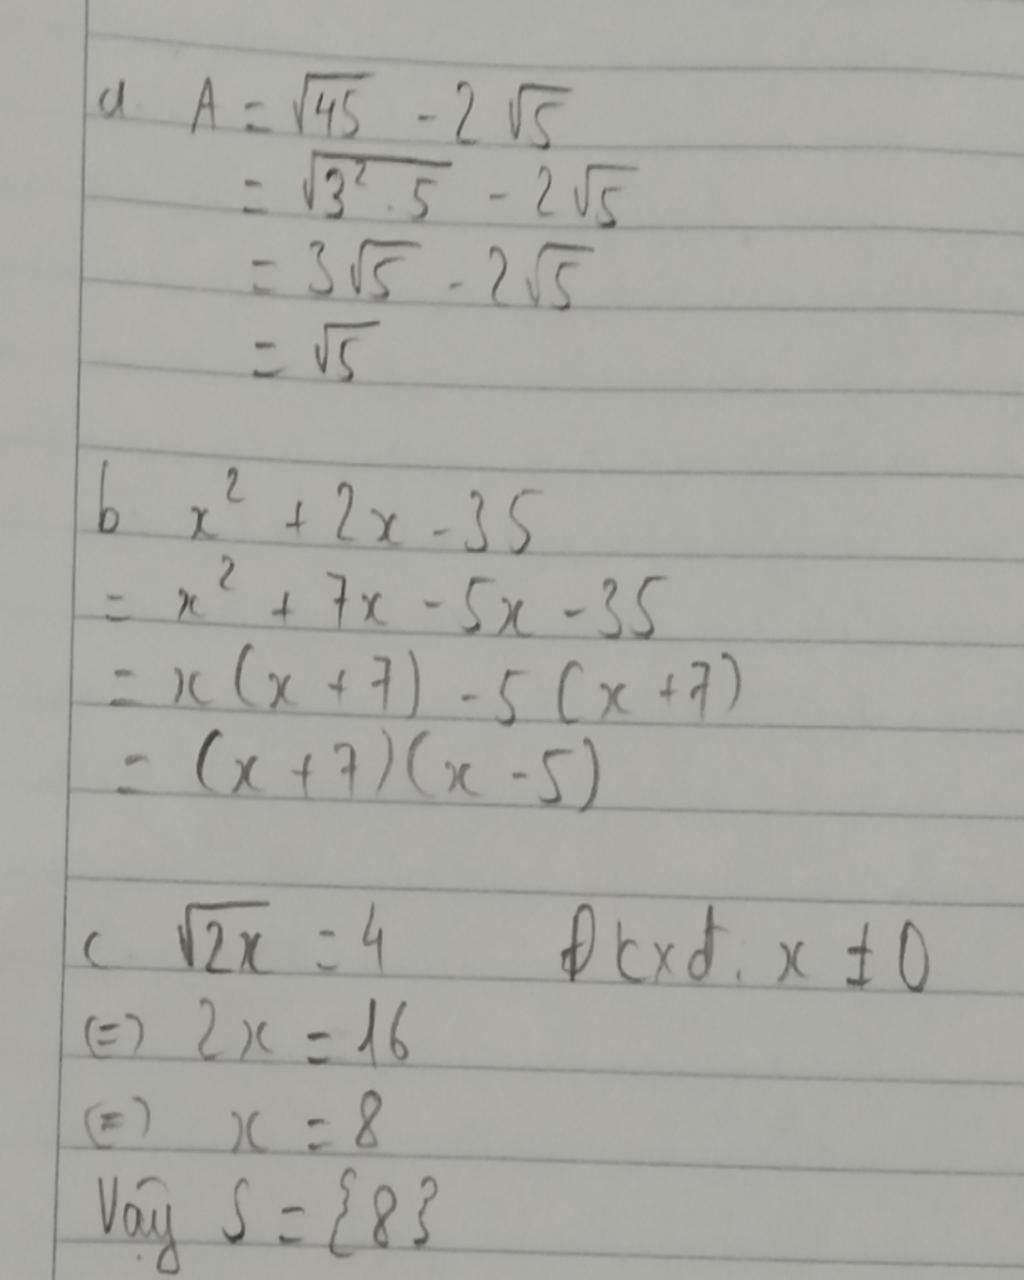 a A = √45 - 2√5
= √3² . 5 - 2√5
= 3√5 - 2√5
= √5
b x² + 2x - 35
= x² + 7x - 5x - 35
= x(x + 7) - 5(x + 7)
= (x + 7)(x - 5)
c √2x = 4 Đkxđ. x ≠ 0
(=) 2x = 16
(=) x = 8
Vậy S = {8}